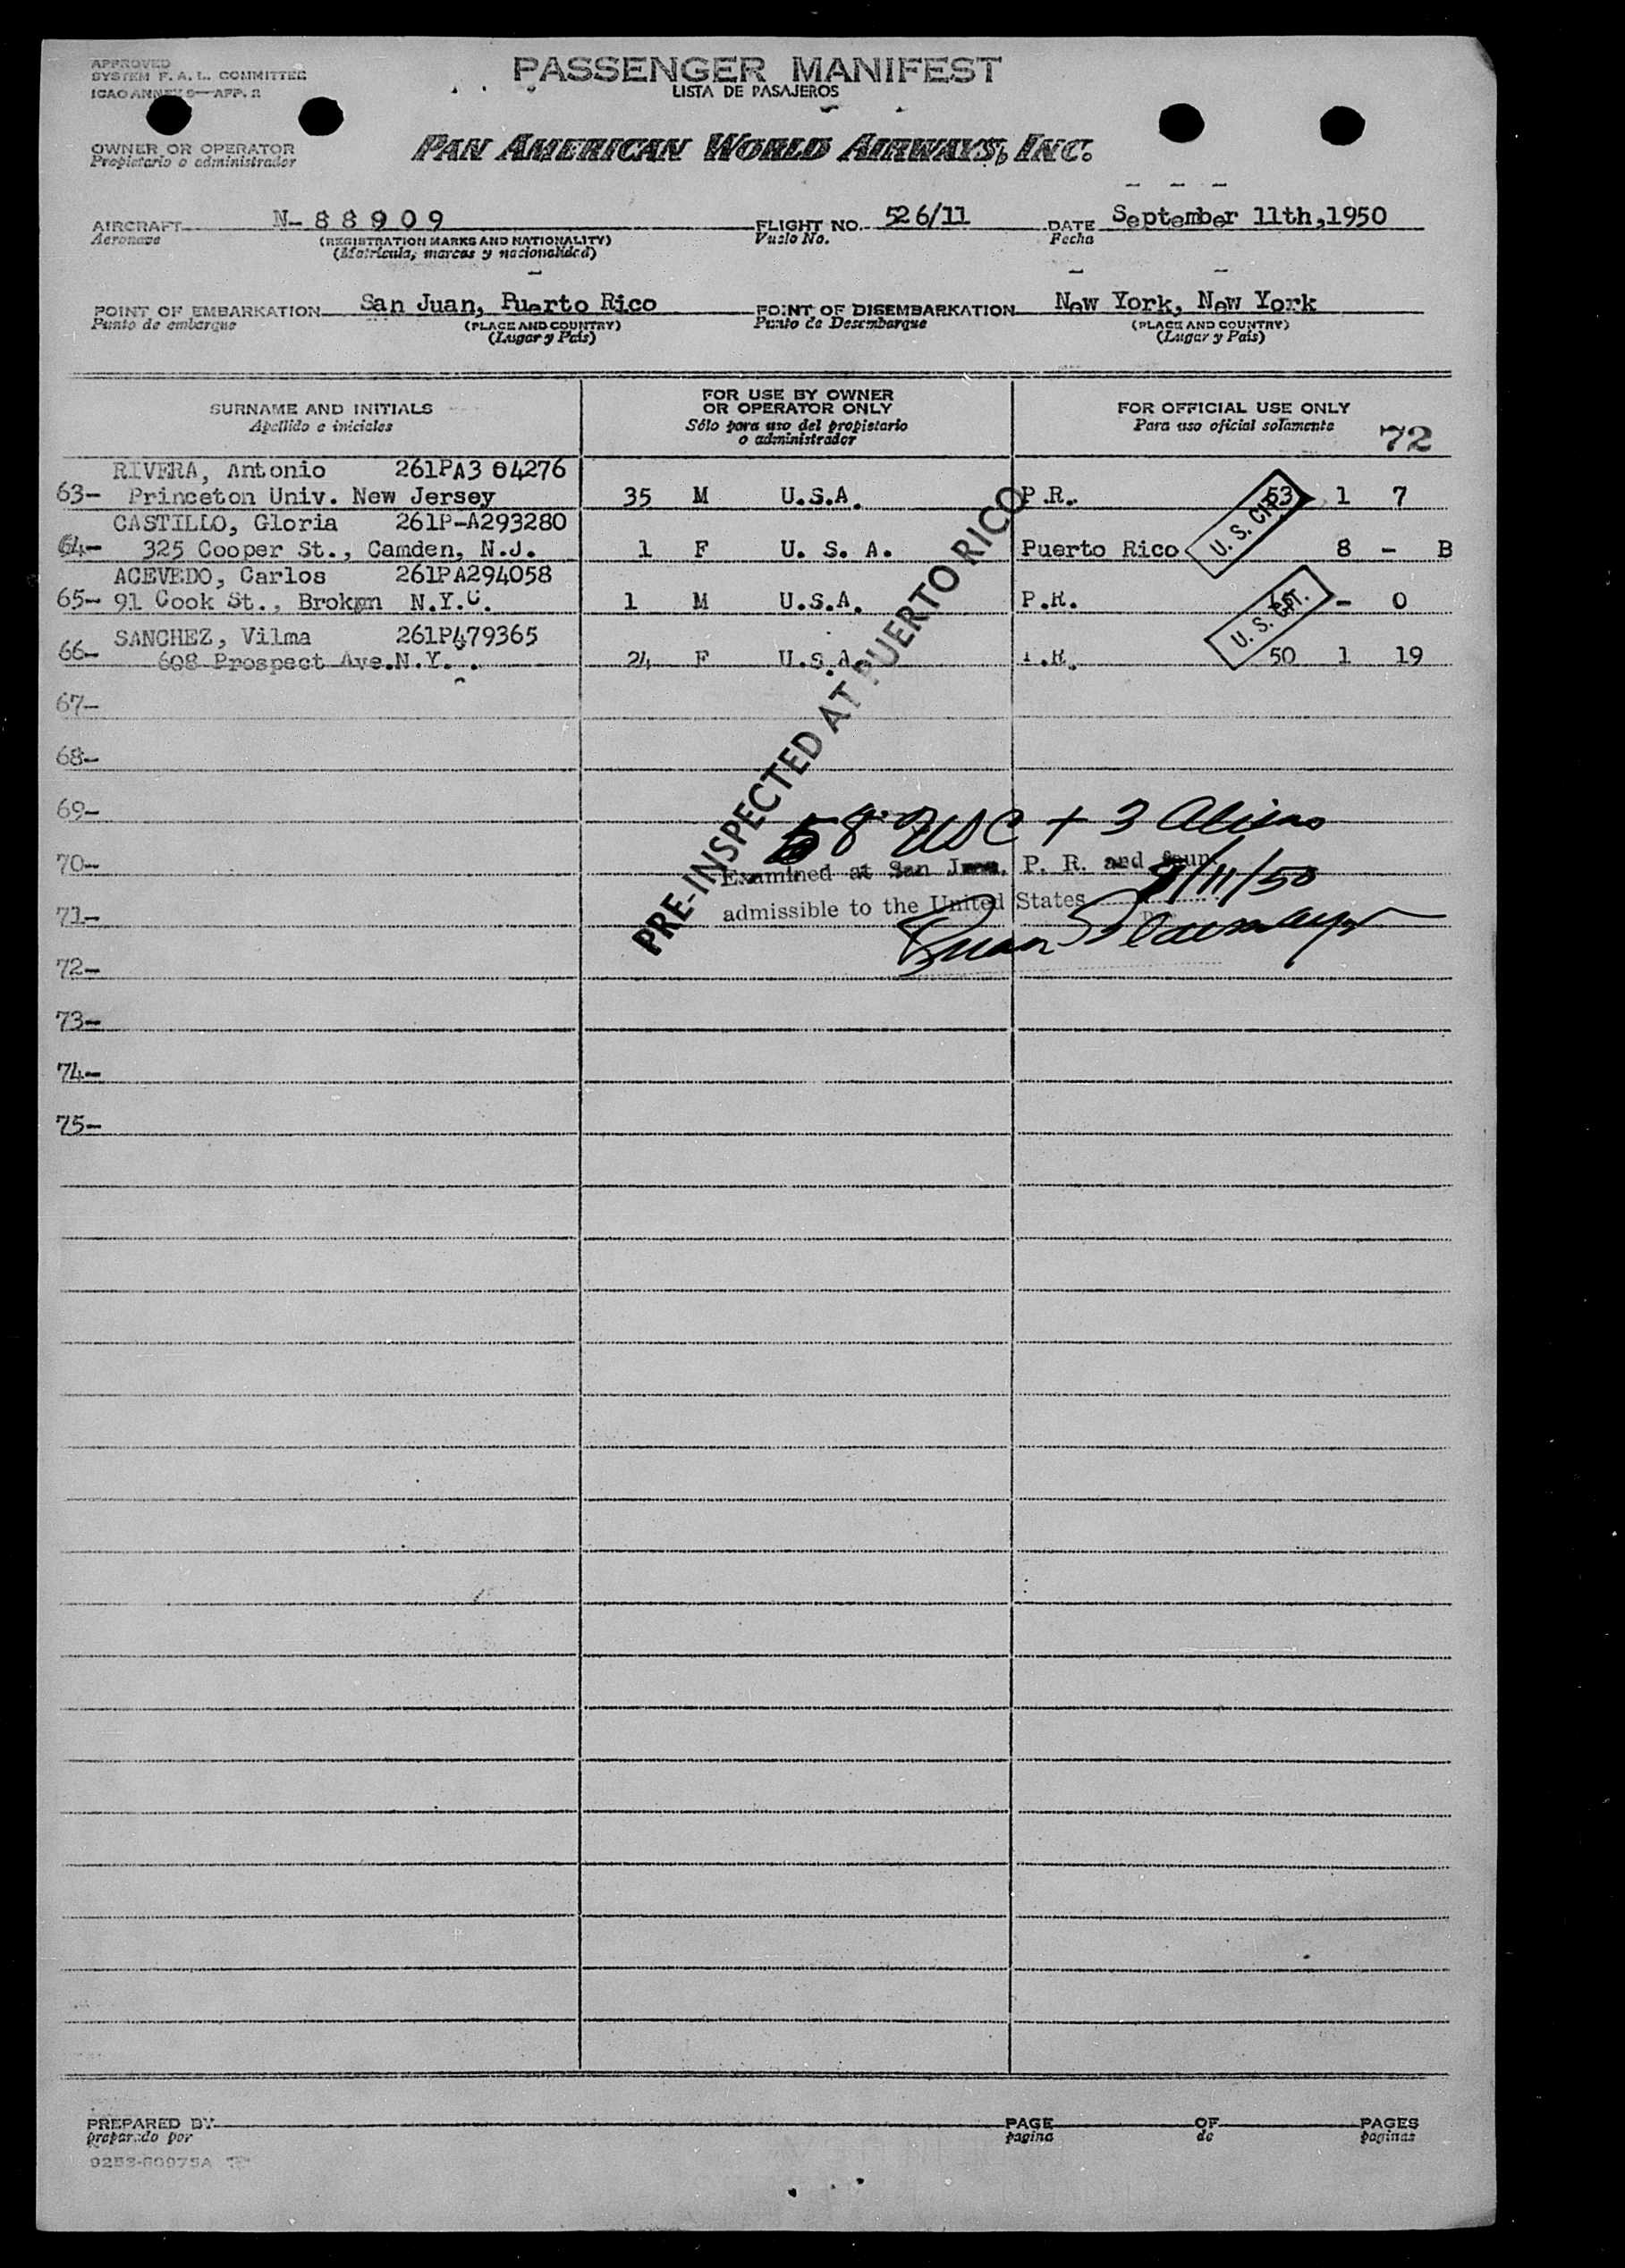 APPROVED
SYSTEM F. A. L. COMMITTEE
ICAO ANNEX 9—APP. 2
PASSENGER MANIFEST
LISTA DE PASAJEROS
OWNER OR OPERATOR
Propietario o administrador
PAN AMERICAN WORLD AIRWAYS, INC.
AIRCRAFT N-88909 FLIGHT NO. 526/11 DATE September 11th,1950
Aeronave (REGISTRATION MARKS AND NATIONALITY) Vuelo No. Fecha
(Matrícula, marcas y nacionalidad)
POINT OF EMBARKATION San Juan, Puerto Rico POINT OF DISEMBARKATION New York, New York
Punto de embarque (PLACE AND COUNTRY) Punto de Desembarque (PLACE AND COUNTRY)
(Lugar y País) (Lugar y País)
SURNAME AND INITIALS
Apellido e iniciales
FOR USE BY OWNER
OR OPERATOR ONLY
Sólo para uso del propietario
o administrador
FOR OFFICIAL USE ONLY
Para uso oficial solamente
72
RIVERA, Antonio 261PA3 04276
63- Princeton Univ. New Jersey 35 M U.S.A. P.R. 63 1 7
CASTILLO, Gloria 261P-A293280
64- 325 Cooper St., Camden, N.J. 1 F U. S. A. Puerto Rico 8 - B
U. S. CIT.
ACEVEDO, Carlos 261PA294058
65- 91 Cook St., Brokpn N.Y.C. 1 M U.S.A. P.R. - 0
U. S. CIT.
SANCHEZ, Vilma 261P479365
66- 608 Prospect Ave.N.Y. . 24 F U.S.A. P.R. 50 1 19
67-
68-
69-
70-
71-
72-
73-
74-
75-
PRE-INSPECTED AT PUERTO RICO
58 USC + 3 Aliens
Examined at San Juan, P. R. and foun
9/11/50
admissible to the United States
PREPARED BY PAGE OF PAGES
preparado por pagina de paginas